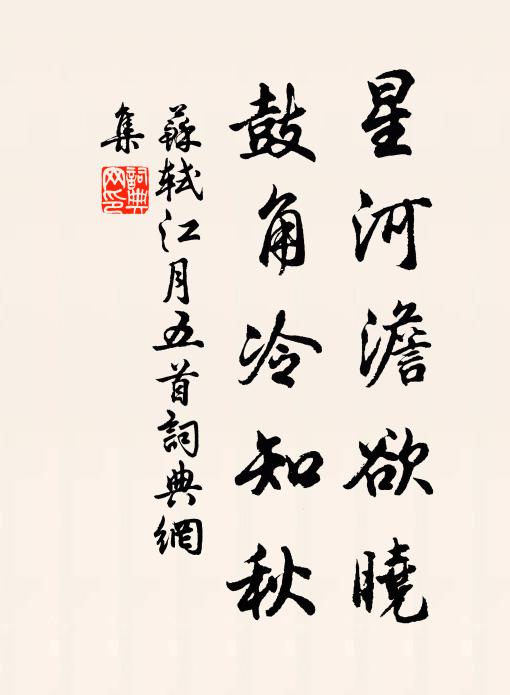 星河澹欲曉
鼓角冷知秋
蘇軾江月五首詞典網
集
詞典
网印